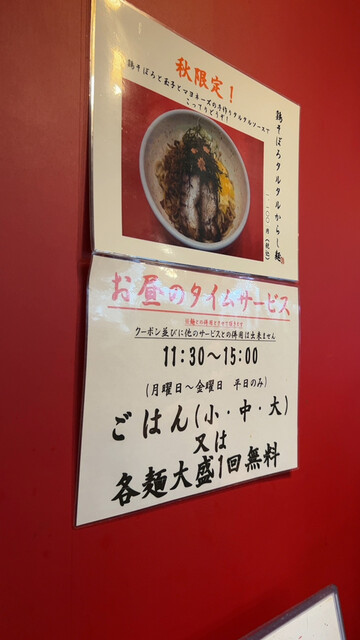 秋限定！
鶏そぼろと玉子とマヨネーズの手作りタルタルソースで
こってりどうぞ！
鶏そぼろタルタルからし麺
一一〇〇円(税込)
お昼のタイムサービス
クーポン並びに他のサービスとの併用は出来ません
11:30～15:00
(月曜日～金曜日 平日のみ)
ごはん(小・中・大)
又は
各麺大盛1回無料